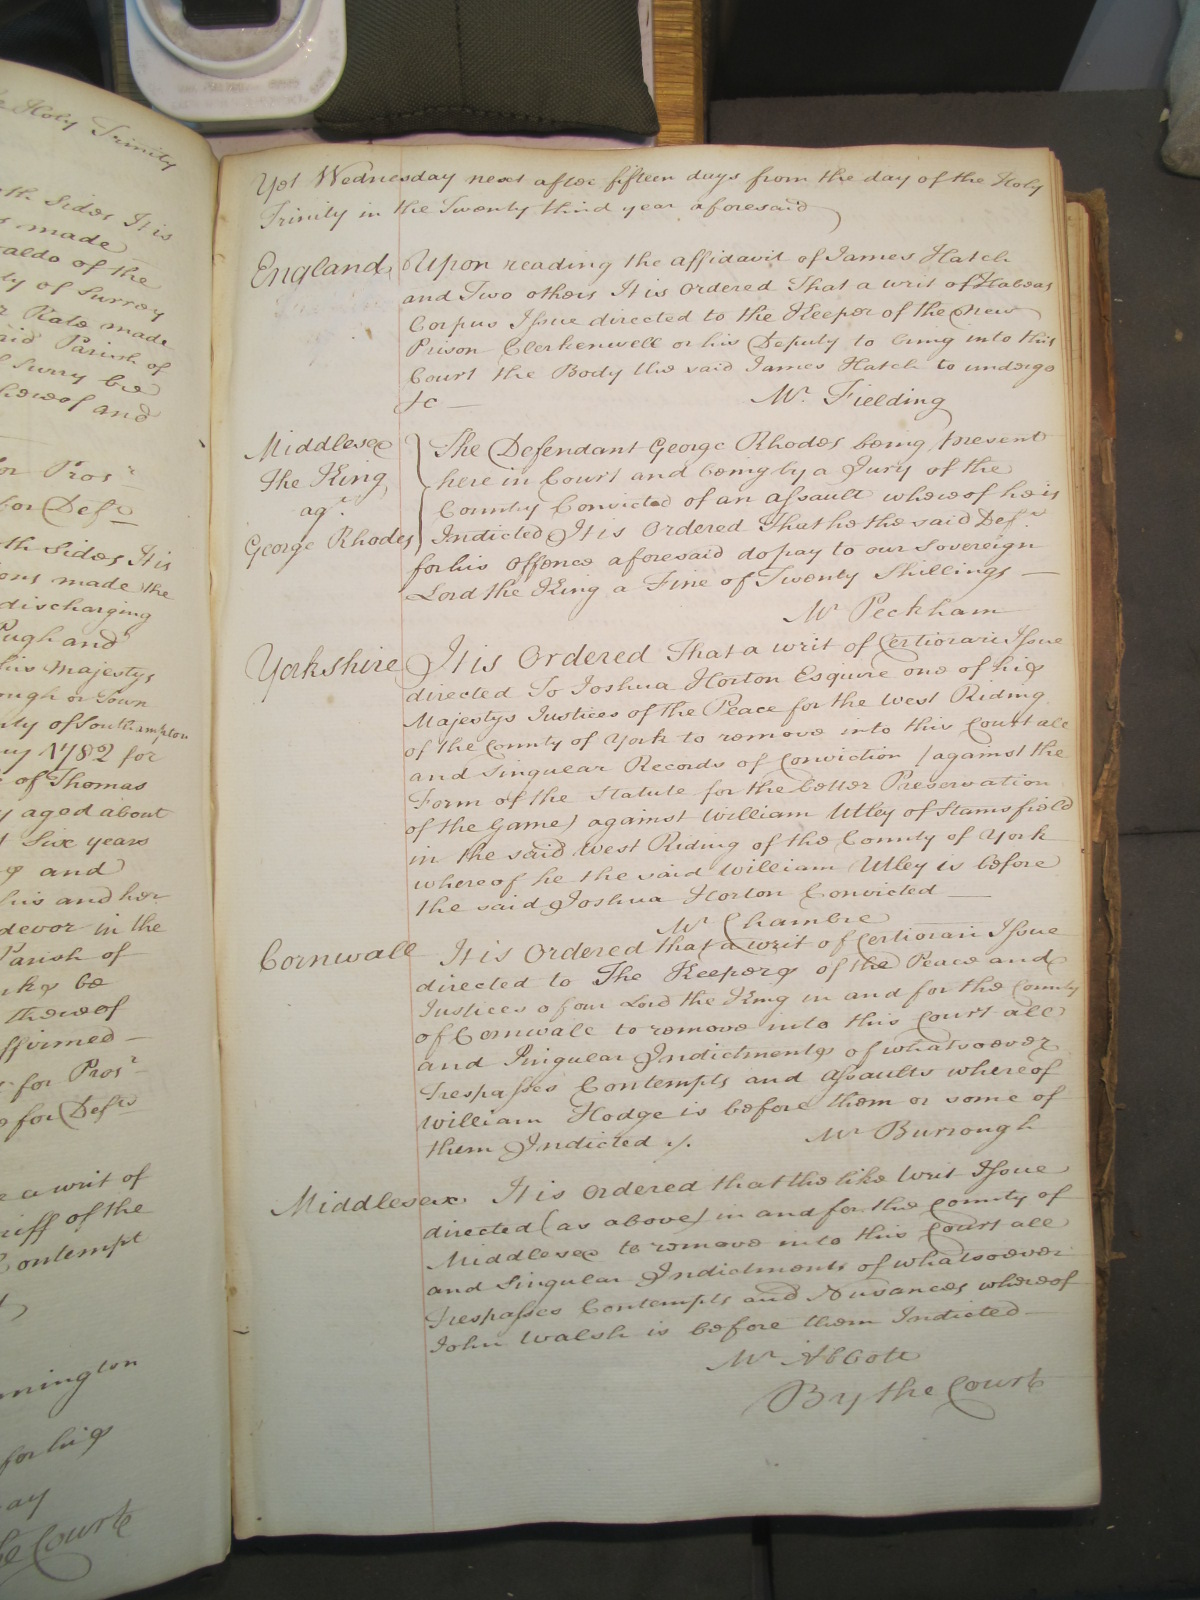 e Holy Trinity
th Sides It is
s made
aldo of the
ty of Surrey
r Rate made
aid Parish of
f Surry be
hereof and
or Pros.r
for Def.t
th Sides It is
ons made the
discharging
Pugh and
his Majestys
ough or Town
nty of Southampton
ny 1782 for
e of Thomas
y aged about
t Six years
and
his and her
devor in the
Parish of
nks be
thereof
ffirmed
for Pros.r
e for Def.ts
e a writ of
riff of the
Contempt
nnington
for his
ay
he Court
Yet Wednesday next after fifteen days from the day of the Holy
Trinity in the Twenty third year aforesaid
England Upon reading the affidavit of James Hatch
and Two others It is Ordered That a writ of Habeas
Corpus Issue directed to the Keeper of the New
Prison Clerkenwell or his Deputy to bring into this
Court the Body the said James Hatch to undergo
&c — Mr. Fielding
Middlesex
The King
ag.t
George Rhodes
The Defendant George Rhodes being present
here in Court and being by a Jury of the
County Convicted of an assault whereof he is
Indicted It is Ordered That he the said Def.t
for his Offence aforesaid do pay to our Sovereign
Lord the King a Fine of Twenty Shillings —
Mr Peckham
Yorkshire It is Ordered That a writ of Certiorari Issue
directed To Joshua Horton Esquire one of his
Majestys Justices of the Peace for the West Riding
of the County of York to remove into this Court all
and Singular Records of Conviction (against the
Form of the Statute for the better Preservation
of the Game) against William Utley of Stansfield
in the said West Riding of the County of York
whereof he the said William Utley is before
the said Joshua Horton Convicted —
Mr Chambre
Cornwall It is Ordered that a writ of Certiorari Issue
directed to The Keepers of the Peace and
Justices of our Lord the King in and for the County
of Cornwall to remove into this Court all
and Singular Indictments of whatsoever
Trespasses Contempts and Assaults whereof
William Hodge is before them or some of
them Indicted /. Mr Burrough
Middlesex It is Ordered that the like Writ Issue
directed (as above) in and for the County of
Middlesex to remove into this Court all
and Singular Indictments of whatsoever
Trespasses Contempts and Nusances whereof
John Walsh is before them Indicted —
Mr Abbott
By the Court